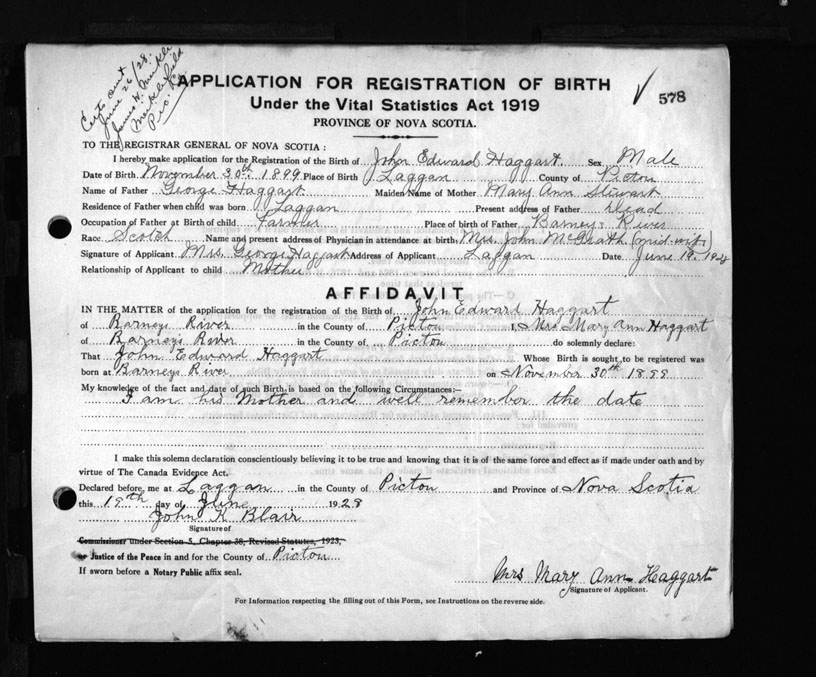 Certs sent
June 26/28.
James H. Meikle
Merklefield
Pic. Co.
APPLICATION FOR REGISTRATION OF BIRTH
✓ 578
Under the Vital Statistics Act 1919
PROVINCE OF NOVA SCOTIA.
TO THE REGISTRAR GENERAL OF NOVA SCOTIA:
I hereby make application for the Registration of the Birth of John Edward Haggart. Sex Male
Date of Birth November 30th 1899 Place of Birth Laggan County of Pictou
Name of Father George Haggart Maiden Name of Mother Mary Ann Stewart
Residence of Father when child was born Laggan Present address of Father Dead
Occupation of Father at Birth of child Farmer Place of birth of Father Barneys River
Race Scotch Name and present address of Physician in attendance at birth: Mrs. John McGrath (mid-wife)
Signature of Applicant Mrs. George Haggart Address of Applicant Laggan Date June 19. 1928
Relationship of Applicant to child Mother
AFFIDAVIT
IN THE MATTER of the application for the registration of the Birth of John Edward Haggart
of Barneys River in the County of Pictou I, Mrs Mary Ann Haggart
of Barneys River in the County of Pictou do solemnly declare:
That John Edward Haggart Whose Birth is sought to be registered was
born at Barneys River on November 30th 1899
My knowledge of the fact and date of such Birth is based on the following Circumstances:—
I am his Mother and well remember the date
I make this solemn declaration conscientiously believing it to be true and knowing that it is of the same force and effect as if made under oath and by
virtue of The Canada Evidence Act.
Declared before me at Laggan in the County of Pictou and Province of Nova Scotia
this 19th day of June 1928
John K Blair
Signature of
Commissioner under Section 5, Chapter 38, Revised Statutes, 1923,
or Justice of the Peace in and for the County of Pictou
If sworn before a Notary Public affix seal.
Mrs Mary Ann Haggart
Signature of Applicant.
For Information respecting the filling out of this Form, see Instructions on the reverse side.